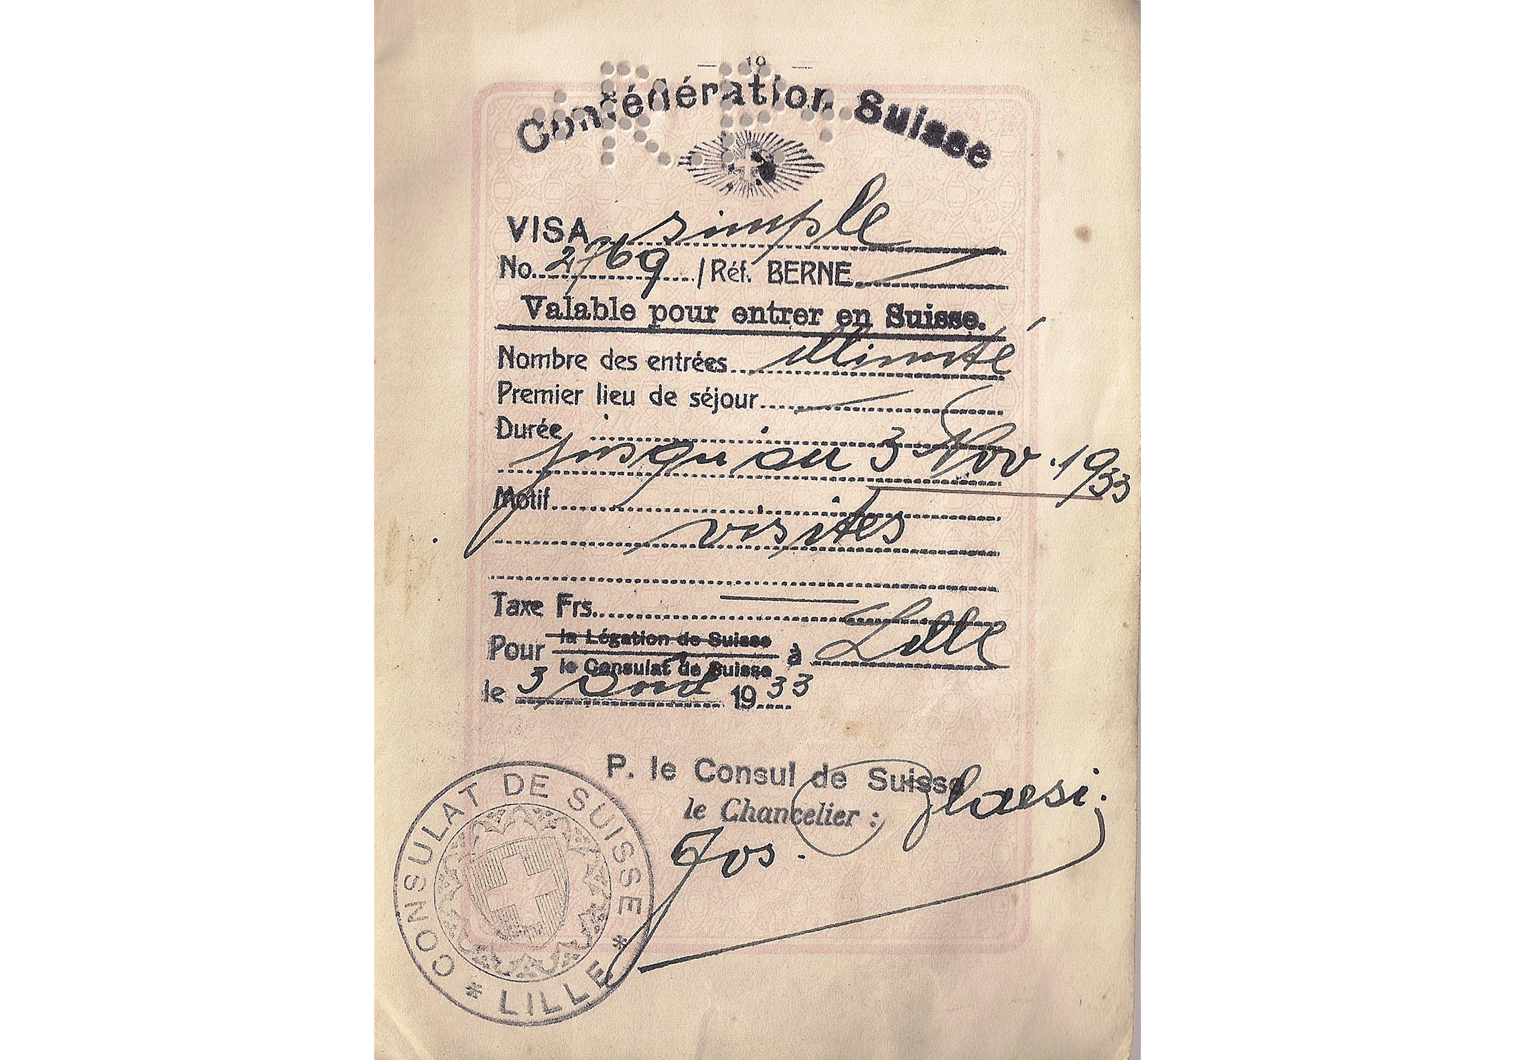 — 10 —
R.P.
Confédération Suisse
VISA simple
No. 2769 / Réf. BERNE
Valable pour entrer en Suisse.
Nombre des entrées illimité
Premier lieu de séjour
Durée
jusqu'au 3 Nov. 1933
Motif
visites
Taxe Frs.
Pour la Légation de Suisse
le Consulat de Suisse à Lille
le 3 août 1933
P. le Consul de Suisse
le Chancelier :
Jos. Glaesi.
CONSULAT DE SUISSE
* LILLE *